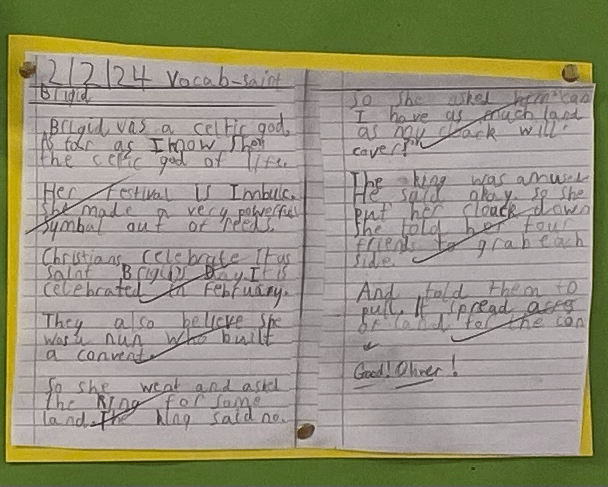 12/2/24 Vocab-saint
Brigid
Brigid was a celtic god,
As far as I know shes
the celtic god of life.
Her festival is Imbulc.
She made a very powerful
symbol out of reeds.
Christians celebrate it as
Saint Brigid's Day. It is
celebrated in february.
They also believe she
was a nun who built
a convent.
So she went and asked
the king for some
land. The king said no.
So she asked him "can
I have as much land
as my cloack will
cover?"
The king was amused
He said okay, so she
put her cloack down
she told her four
friends to grab each
side.
And told them to
pull. It spread
of land for the con
Good! Oliver!